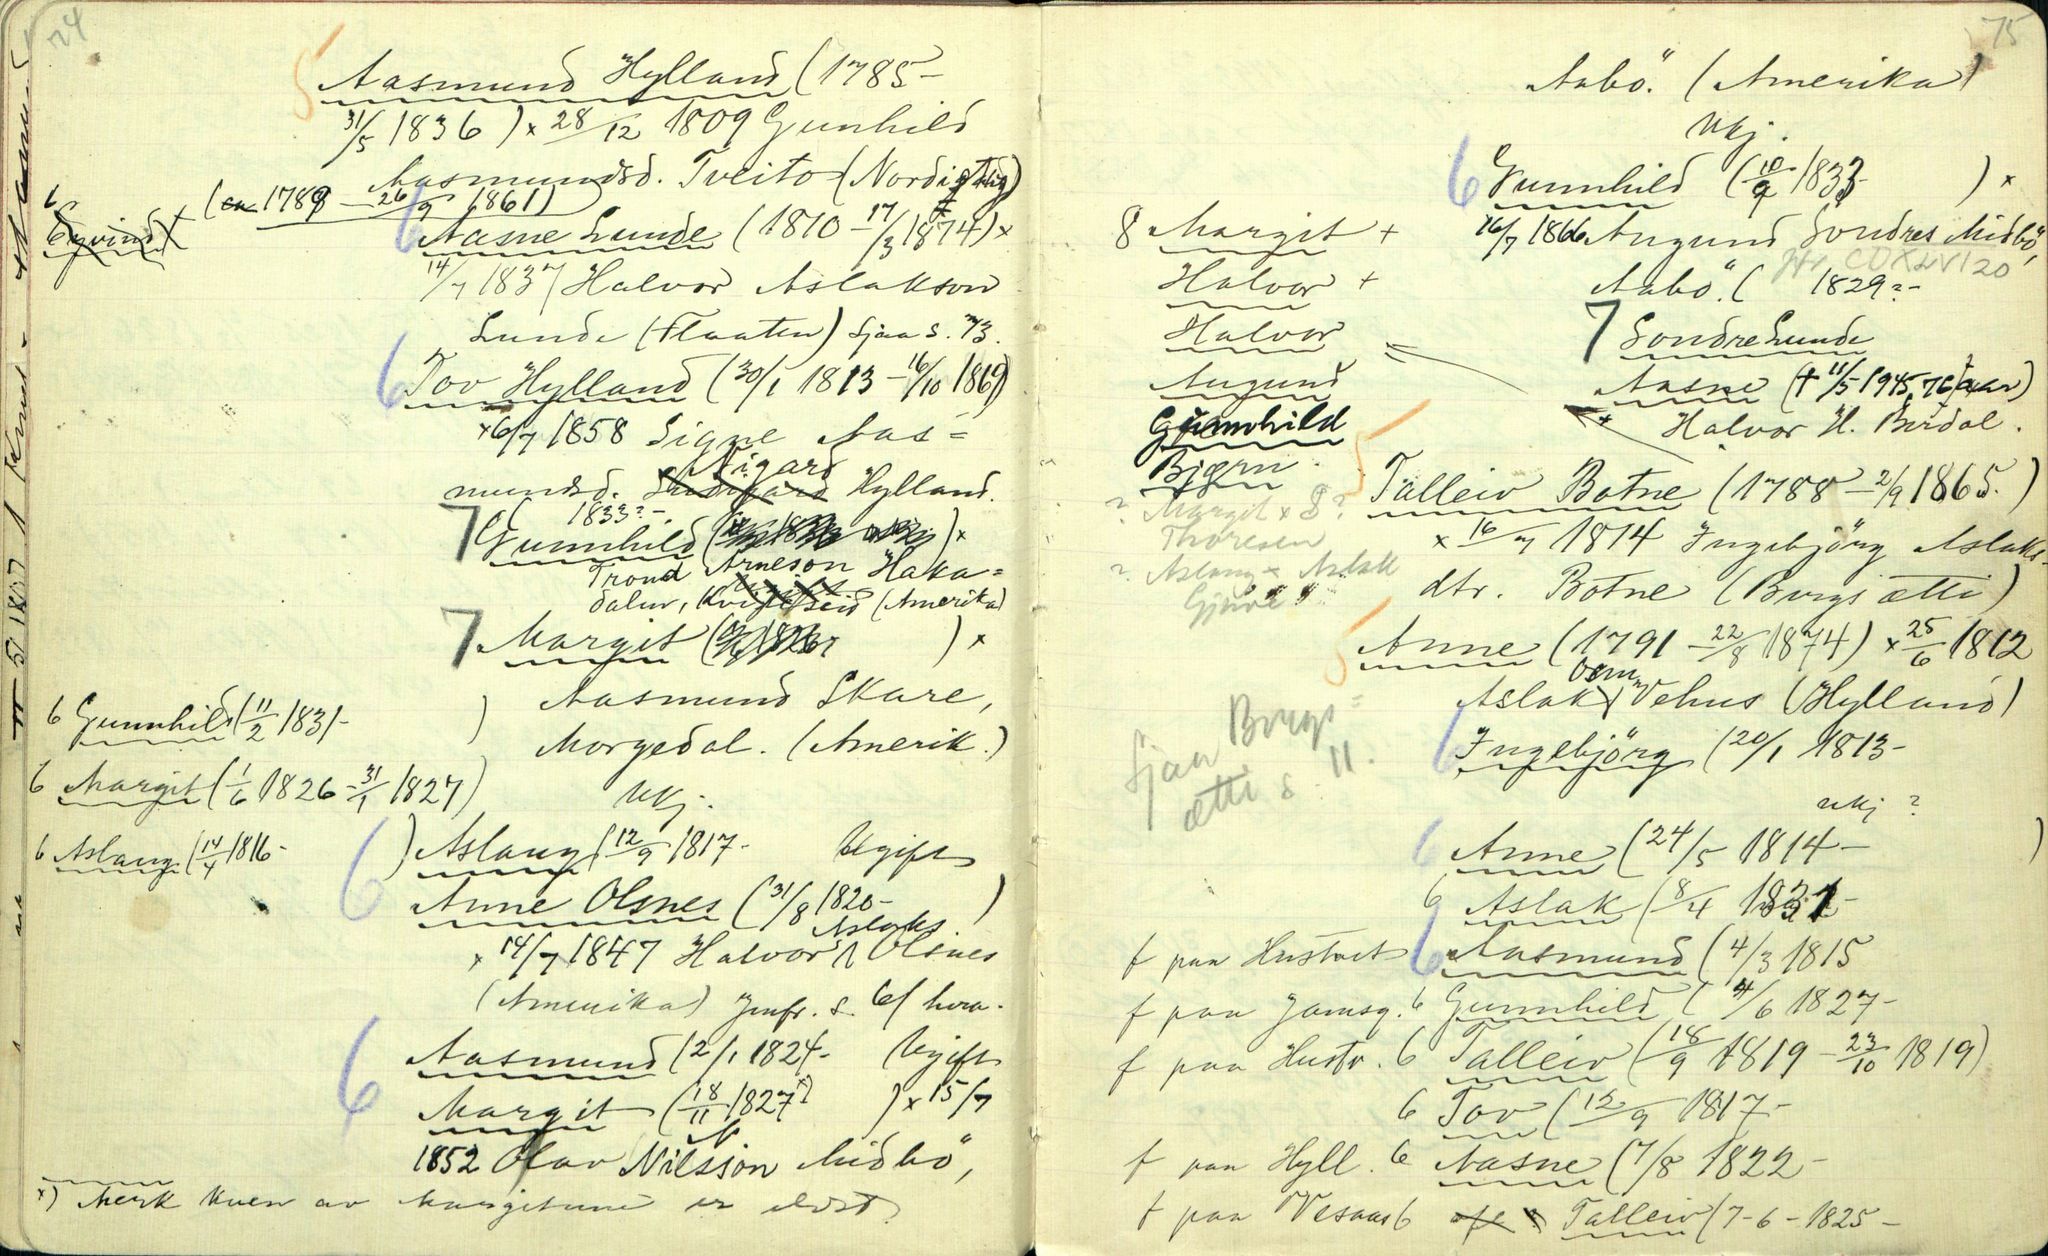 24
5 Aasmund Hylland (1785-
31/5 1836) × 28/12 1809 Gunhild
Aasmundsd. Tveito (Nordigard)
(ca 1789 - 26/9 1861)
6 Eyvind
6 Aasne Lunde (1810 - 17/3 1874) ×
14/7 1837 Halvor Aslakson
Lunde (Flaaten) Sjaa S. 73.
6 Tov Hylland (30/1 1813 - 16/10 1869)
× 6/7 1858 Signe Aas=
mundsd. Nigard Hylland.
1833?-
7 Gunnhild ( ) ×
Trond Arneson Haka=
dalen, Kviteseid (Amerika)
7 Margit ( ) ×
Aasmund Skare,
Morgedal. (Amerik.)
6 Gunnhild (11/2 1831- )
6 Margit (1/6 1826 - 31/1 1827)
Ukj.
6 Aslaug (14/4 1816- )
6 Aslaug (12/9 1817- Ugift
Anne Olsnes (31/8 1820- )
× 14/7 1847 Halvor Aslaks. Olsnes
(Amerika) Jmfr. S. 61 hera.
6 Aasmund (2/1 1824- Ugift
Margit (18/11 1827 x) ) × 15/7
1852 Olav N Nilsson Midbö,
x) Merk kven av Margitune er eldst?
75
Aabö. (Amerika)
Ukj.
6 Gunnhild (10/9 1833- ) ×
16/7 1866 Augund Sondres Midbö,
Aabö. ( 1829?-
7 Sondre Lunde
Aasne († 11/5 1945, 76 aar)
× Halvor H. Birdal.
8 Margit +
Halvor +
Halvor
Augund
Gunnhild
Bjørn
? Margit × S?
Thoresen
? Aslaug × Aslak
Gjuve
5 Talleiv Botne (1788 - 2/9 1865.)
× 16/7 1814 Ingebjörg Aslaks-
dtr. Botne (Burgs ætti)
5 Anne (1791 - 22/8 1874) × 25/6 1812
Aslak Vehus (Hylland)
Sjaa Burgs=
ætti S 11.
6 Ingebjörg (20/1 1813-
ukj ?
6 Anne (24/5 1814- )
6 Aslak (8/4 1831-
f paa Hustveit 6 Aasmund (4/3 1815
f paa Jamsg. 6 Gunnhild (4/6 1827-
f paa Hustv. 6 Talleiv (18/9 1819 - 23/10 1819)
6 Tov (12/9 1817-
f paa Hyll. 6 Aasne (7/8 1822-
f paa Vesaas 6 Talleiv (7-6-1825-